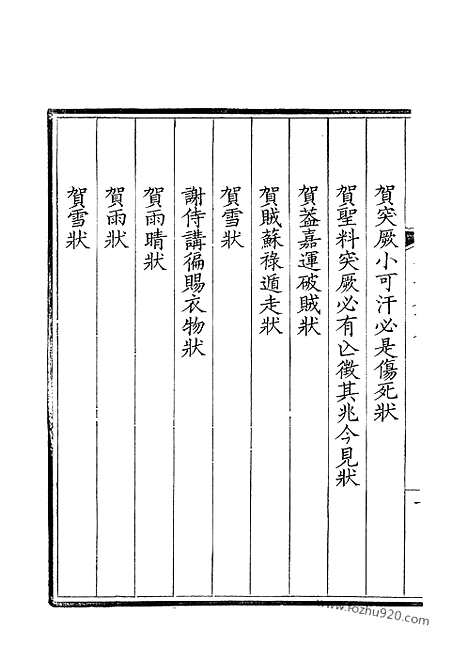 賀突厥小可汗必是傷死狀
賀聖料突厥必有亾徵其兆今見狀
賀葢嘉運破賊狀
賀賊蘇祿遁走狀
賀雪狀
謝侍講徧賜衣物狀
賀雨晴狀
賀雨狀
賀雪狀
一
www.fozhu920.com